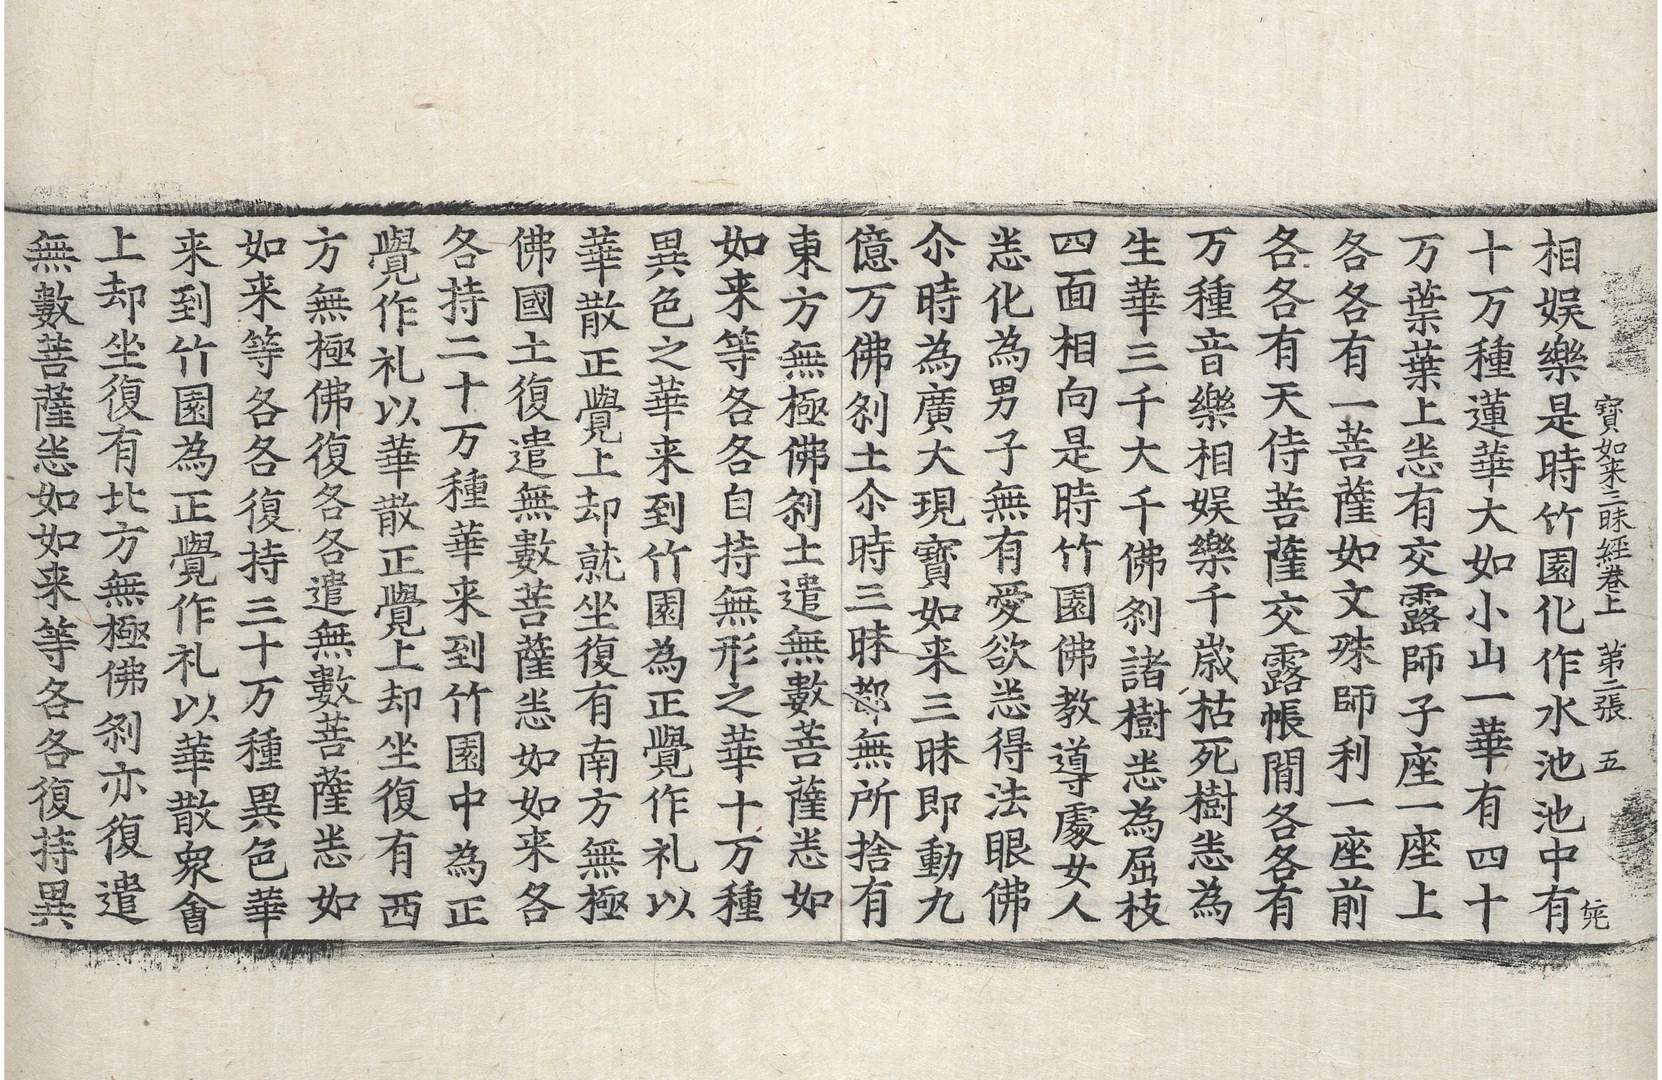 寶如来三昧經卷上 第二張 五
相娛樂是時竹園化作水池池中有
十万種蓮華大如小山一華有四十
万葉葉上悉有交露師子座一座上
各各有一菩薩如文殊師利一座前
各各有天侍菩薩交露帳閒各各有
万種音樂相娛樂千歳枯死樹悉為
生華三千大千佛剎諸樹悉為屈枝
四面相向是時竹園佛教導處女人
悉化為男子無有愛欲悉得法眼佛
尒時為廣大現寶如来三昧即動九
億万佛剎土尒時三昧都無所捨有
東方無極佛剎土遣無數菩薩悉如
如来等各各自持無形之華十万種
異色之華来到竹園為正覺作礼以
華散正覺上却就坐復有南方無極
佛國土復遣無數菩薩悉如如来各
各持二十万種華来到竹園中為正
覺作礼以華散正覺上却坐復有西
方無極佛復各各遣無數菩薩悉如
如来等各各復持三十万種異色華
来到竹園為正覺作礼以華散衆會
上却坐復有北方無極佛剎亦復遣
無數菩薩悉如如来等各各復持異